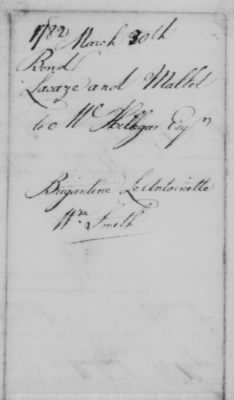 1782 March 30th
Bond
Lacaze and Mallet
to M. Hillegas Esqr
Brigantine L'Antoinette
Wm Smith